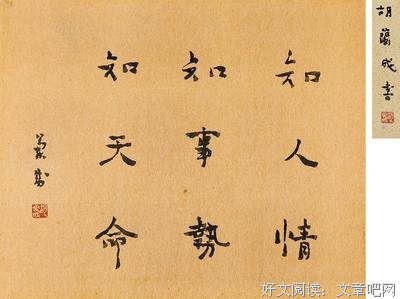 胡蘭成書
知人情
知事勢
知天命
蘭成
好文阅读：文章吧网